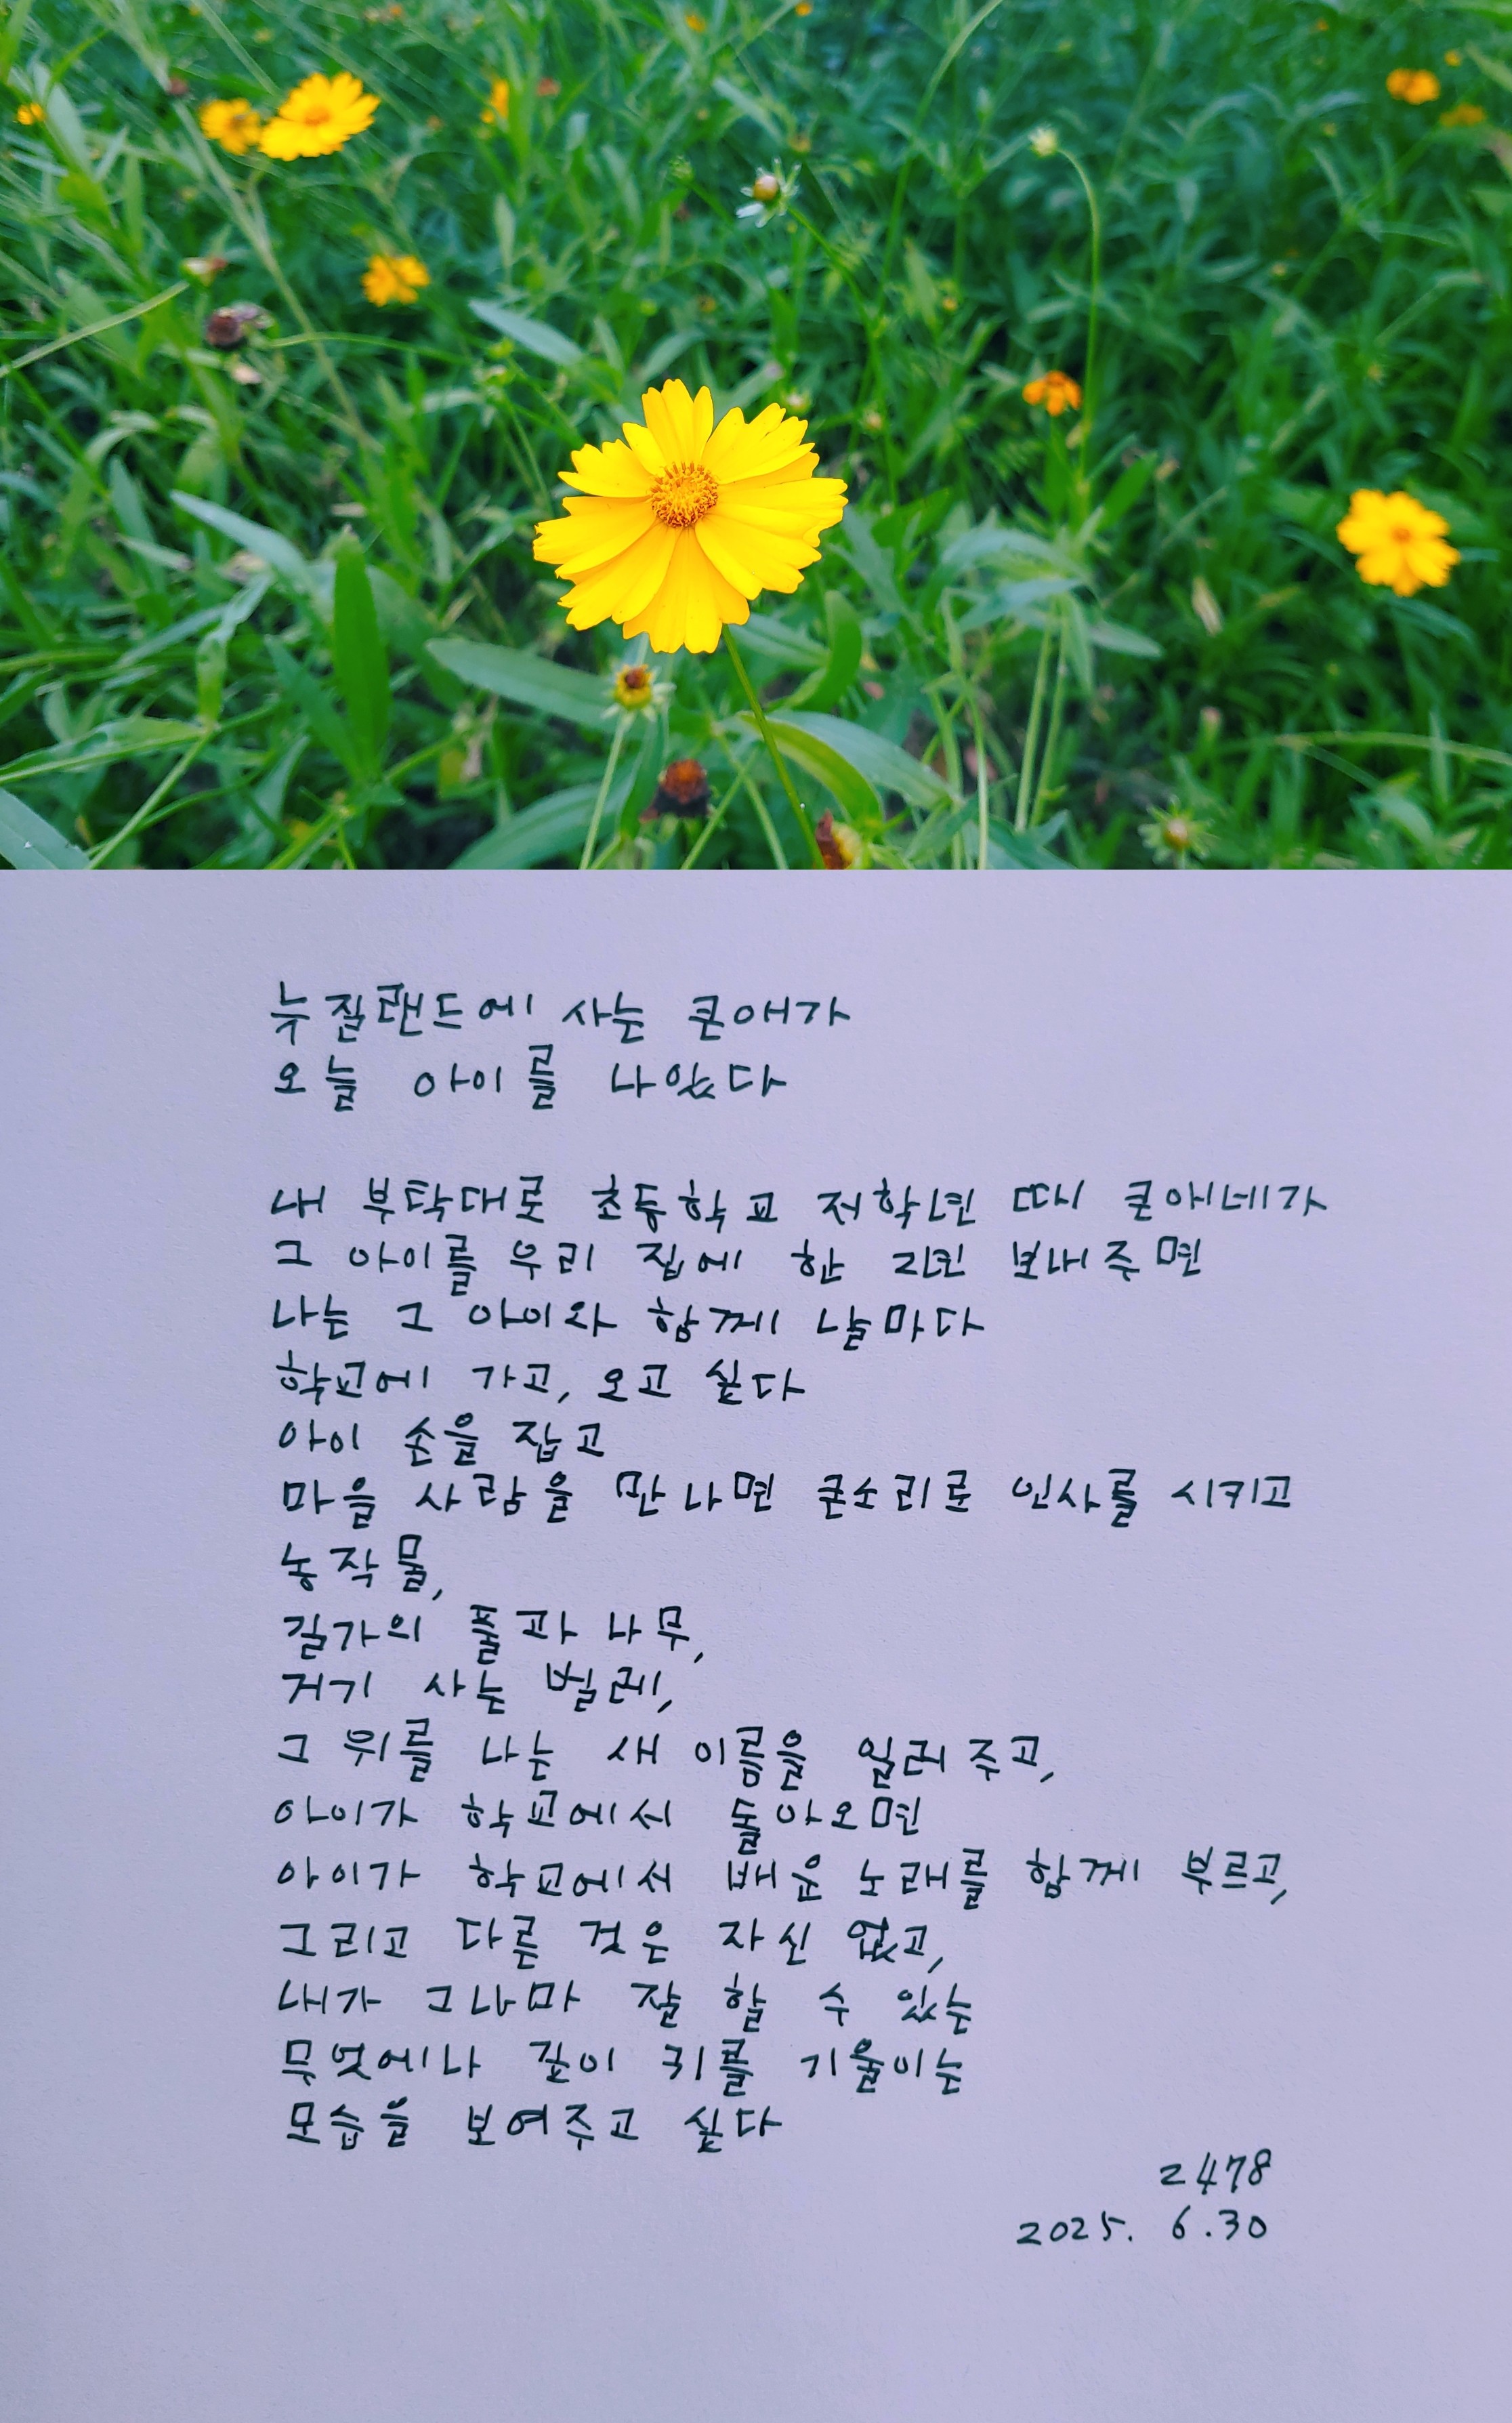 뉴질랜드에 사는 큰애가
오늘 아이를 나았다
내 부탁대로 초등학교 저학년 때 큰애네가
그 아이를 우리 집에 한 2년 보내주면
나는 그 아이와 함께 날마다
학교에 가고, 오고 싶다
아이 손을 잡고
마을 사람을 만나면 큰소리로 인사를 시키고
농작물,
길가의 풀과 나무,
거기 사는 벌레,
그 위를 나는 새 이름을 일러 주고,
아이가 학교에서 돌아오면
아이가 학교에서 배운 노래를 함께 부르고,
그리고 다른 것은 자신 없고,
내가 그나마 잘 할 수 있는
무엇에나 깊이 귀를 기울이는
모습을 보여주고 싶다
2478
2025. 6.30